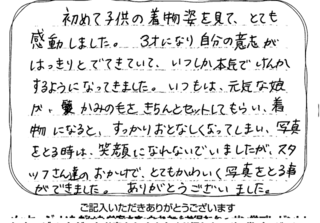 初めて子供の着物姿を見て、とても
感動しました。 3才になり自分の意志が
はっきりとでてきていて、いつしか本気でけんか
するようになってきました。いつもは、元気な娘
が、かみの毛をきちんとセットしてもらい、着
物になると、すっかりおとなしくなってしまい、写真
をとる時は、笑顔になれないでいましたが、スタ
ッフさん達のおかげで、とてもかわいく写真をとる事
ができました。 ありがとうございました。
ご記入いただきありがとうございます